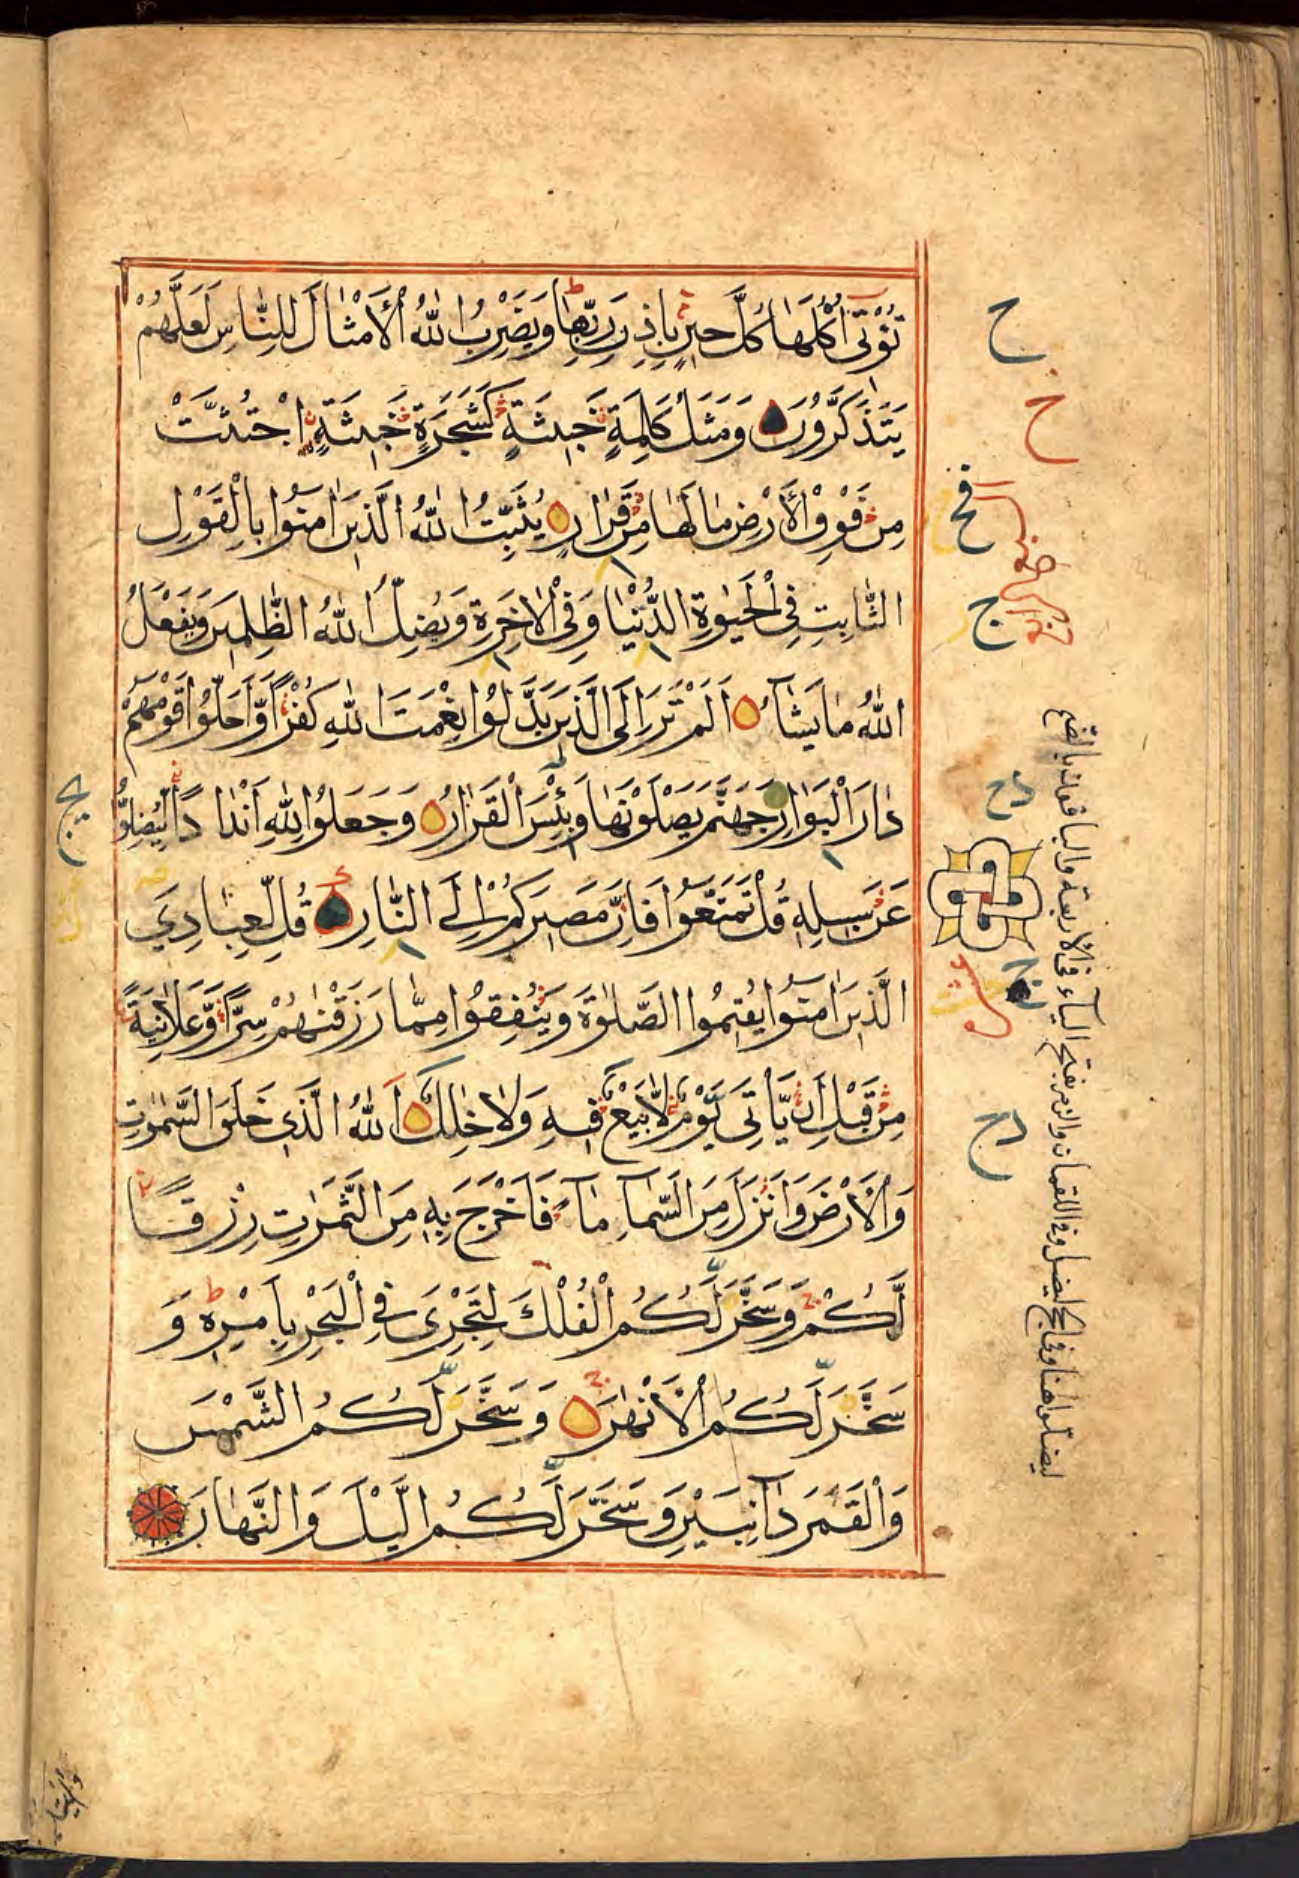 تُؤْتِي أُكُلَهَا كُلَّ حِينٍ بِإِذْنِ رَبِّهَا وَيَضْرِبُ اللّٰهُ الْأَمْثَالَ لِلنَّاسِ لَعَلَّهُمْ
يَتَذَكَّرُونَ وَمَثَلُ كَلِمَةٍ خَبِيثَةٍ كَشَجَرَةٍ خَبِيثَةٍ اجْتُثَّتْ
مِنْ فَوْقِ الْأَرْضِ مَا لَهَا مِنْ قَرَارٍ يُثَبِّتُ اللّٰهُ الَّذِينَ اٰمَنُوا بِالْقَوْلِ
الثَّابِتِ فِي الْحَيٰوةِ الدُّنْيَا وَفِي الْاٰخِرَةِ وَيُضِلُّ اللّٰهُ الظّٰلِمِينَ وَيَفْعَلُ
اللّٰهُ مَا يَشَآءُ أَلَمْ تَرَ إِلَى الَّذِينَ بَدَّلُوا نِعْمَتَ اللّٰهِ كُفْرًا وَّأَحَلُّوا قَوْمَهُمْ
دَارَ الْبَوَارِ جَهَنَّمَ يَصْلَوْنَهَا وَبِئْسَ الْقَرَارُ وَجَعَلُوا لِلّٰهِ أَنْدَادًا لِّيُضِلُّوا
عَنْ سَبِيلِهِ قُلْ تَمَتَّعُوا فَإِنَّ مَصِيرَكُمْ إِلَى النَّارِ قُلْ لِّعِبَادِيَ
الَّذِينَ اٰمَنُوا يُقِيمُوا الصَّلٰوةَ وَيُنْفِقُوا مِمَّا رَزَقْنٰهُمْ سِرًّا وَّعَلَانِيَةً
مِنْ قَبْلِ أَنْ يَّأْتِيَ يَوْمٌ لَّا بَيْعٌ فِيهِ وَلَا خِلٰلٌ اَللّٰهُ الَّذِي خَلَقَ السَّمٰوٰتِ
وَالْأَرْضَ وَأَنْزَلَ مِنَ السَّمَآءِ مَآءً فَأَخْرَجَ بِهِ مِنَ الثَّمَرٰتِ رِزْقًا
لَّكُمْ وَسَخَّرَ لَكُمُ الْفُلْكَ لِتَجْرِيَ فِي الْبَحْرِ بِأَمْرِهِ وَ
سَخَّرَ لَكُمُ الْأَنْهٰرَ وَسَخَّرَ لَكُمُ الشَّمْسَ
وَالْقَمَرَ دَآئِبَيْنِ وَسَخَّرَ لَكُمُ الَّيْلَ وَالنَّهَارَ
ليضلوا هنا وفي الحج ليضل وفي اللقمان والزمر بفتح الياء في الأربعة والباقون بالضم